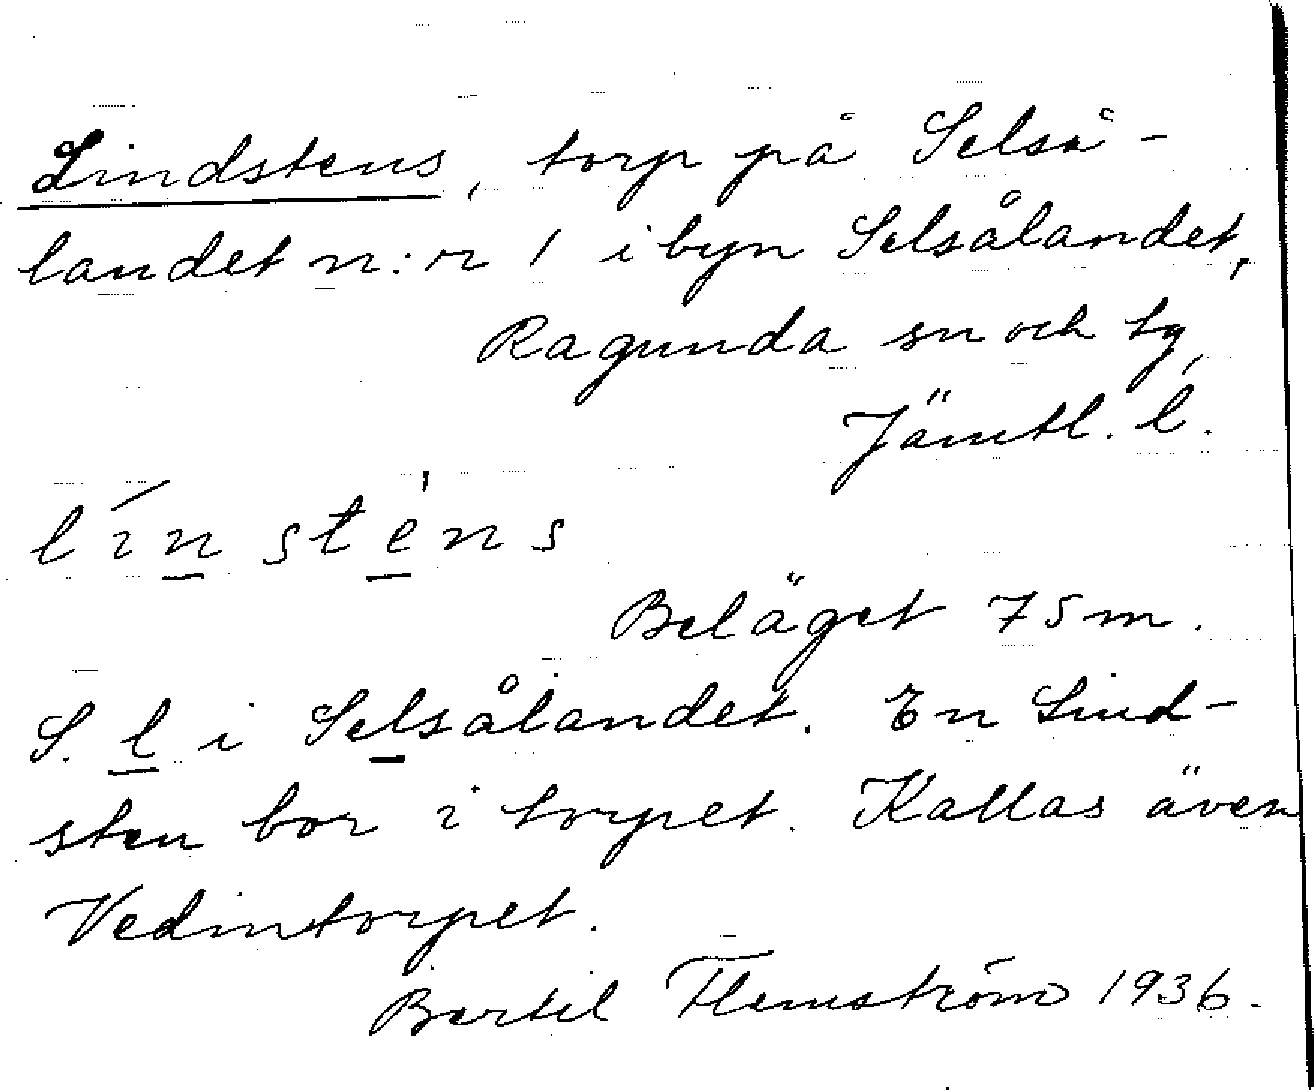 Lindstens, torp på Selså-
landet n:r 1 i byn Selsålandet,
Ragunda sn och tg,
Jämtl. l.
línste̍ns
Beläget 75 m.
S. l i Selsålandet. En Lind-
sten bor i torpet. Kallas även
Vedintorpet.
Bertil Flemström 1936.